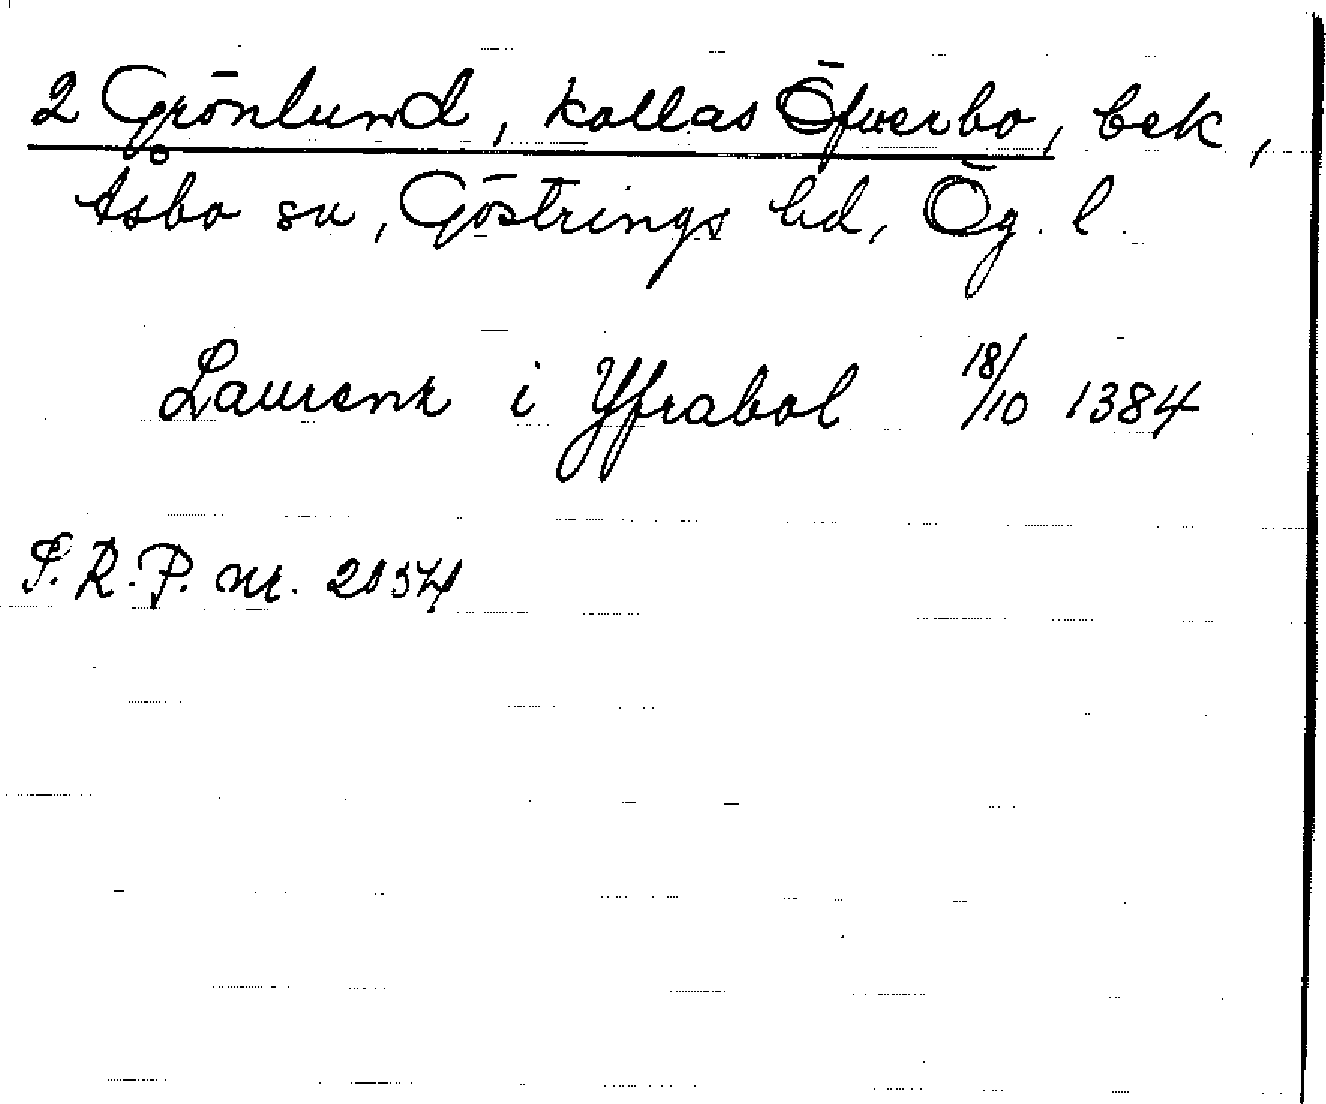 2 Grönlund, kallas Öfverbo, bek,
Åsbo sn, Göstrings hd, Ög. l.
Laurenz i Yfrabol 18/10 1384
S.R.P. nr. 2134